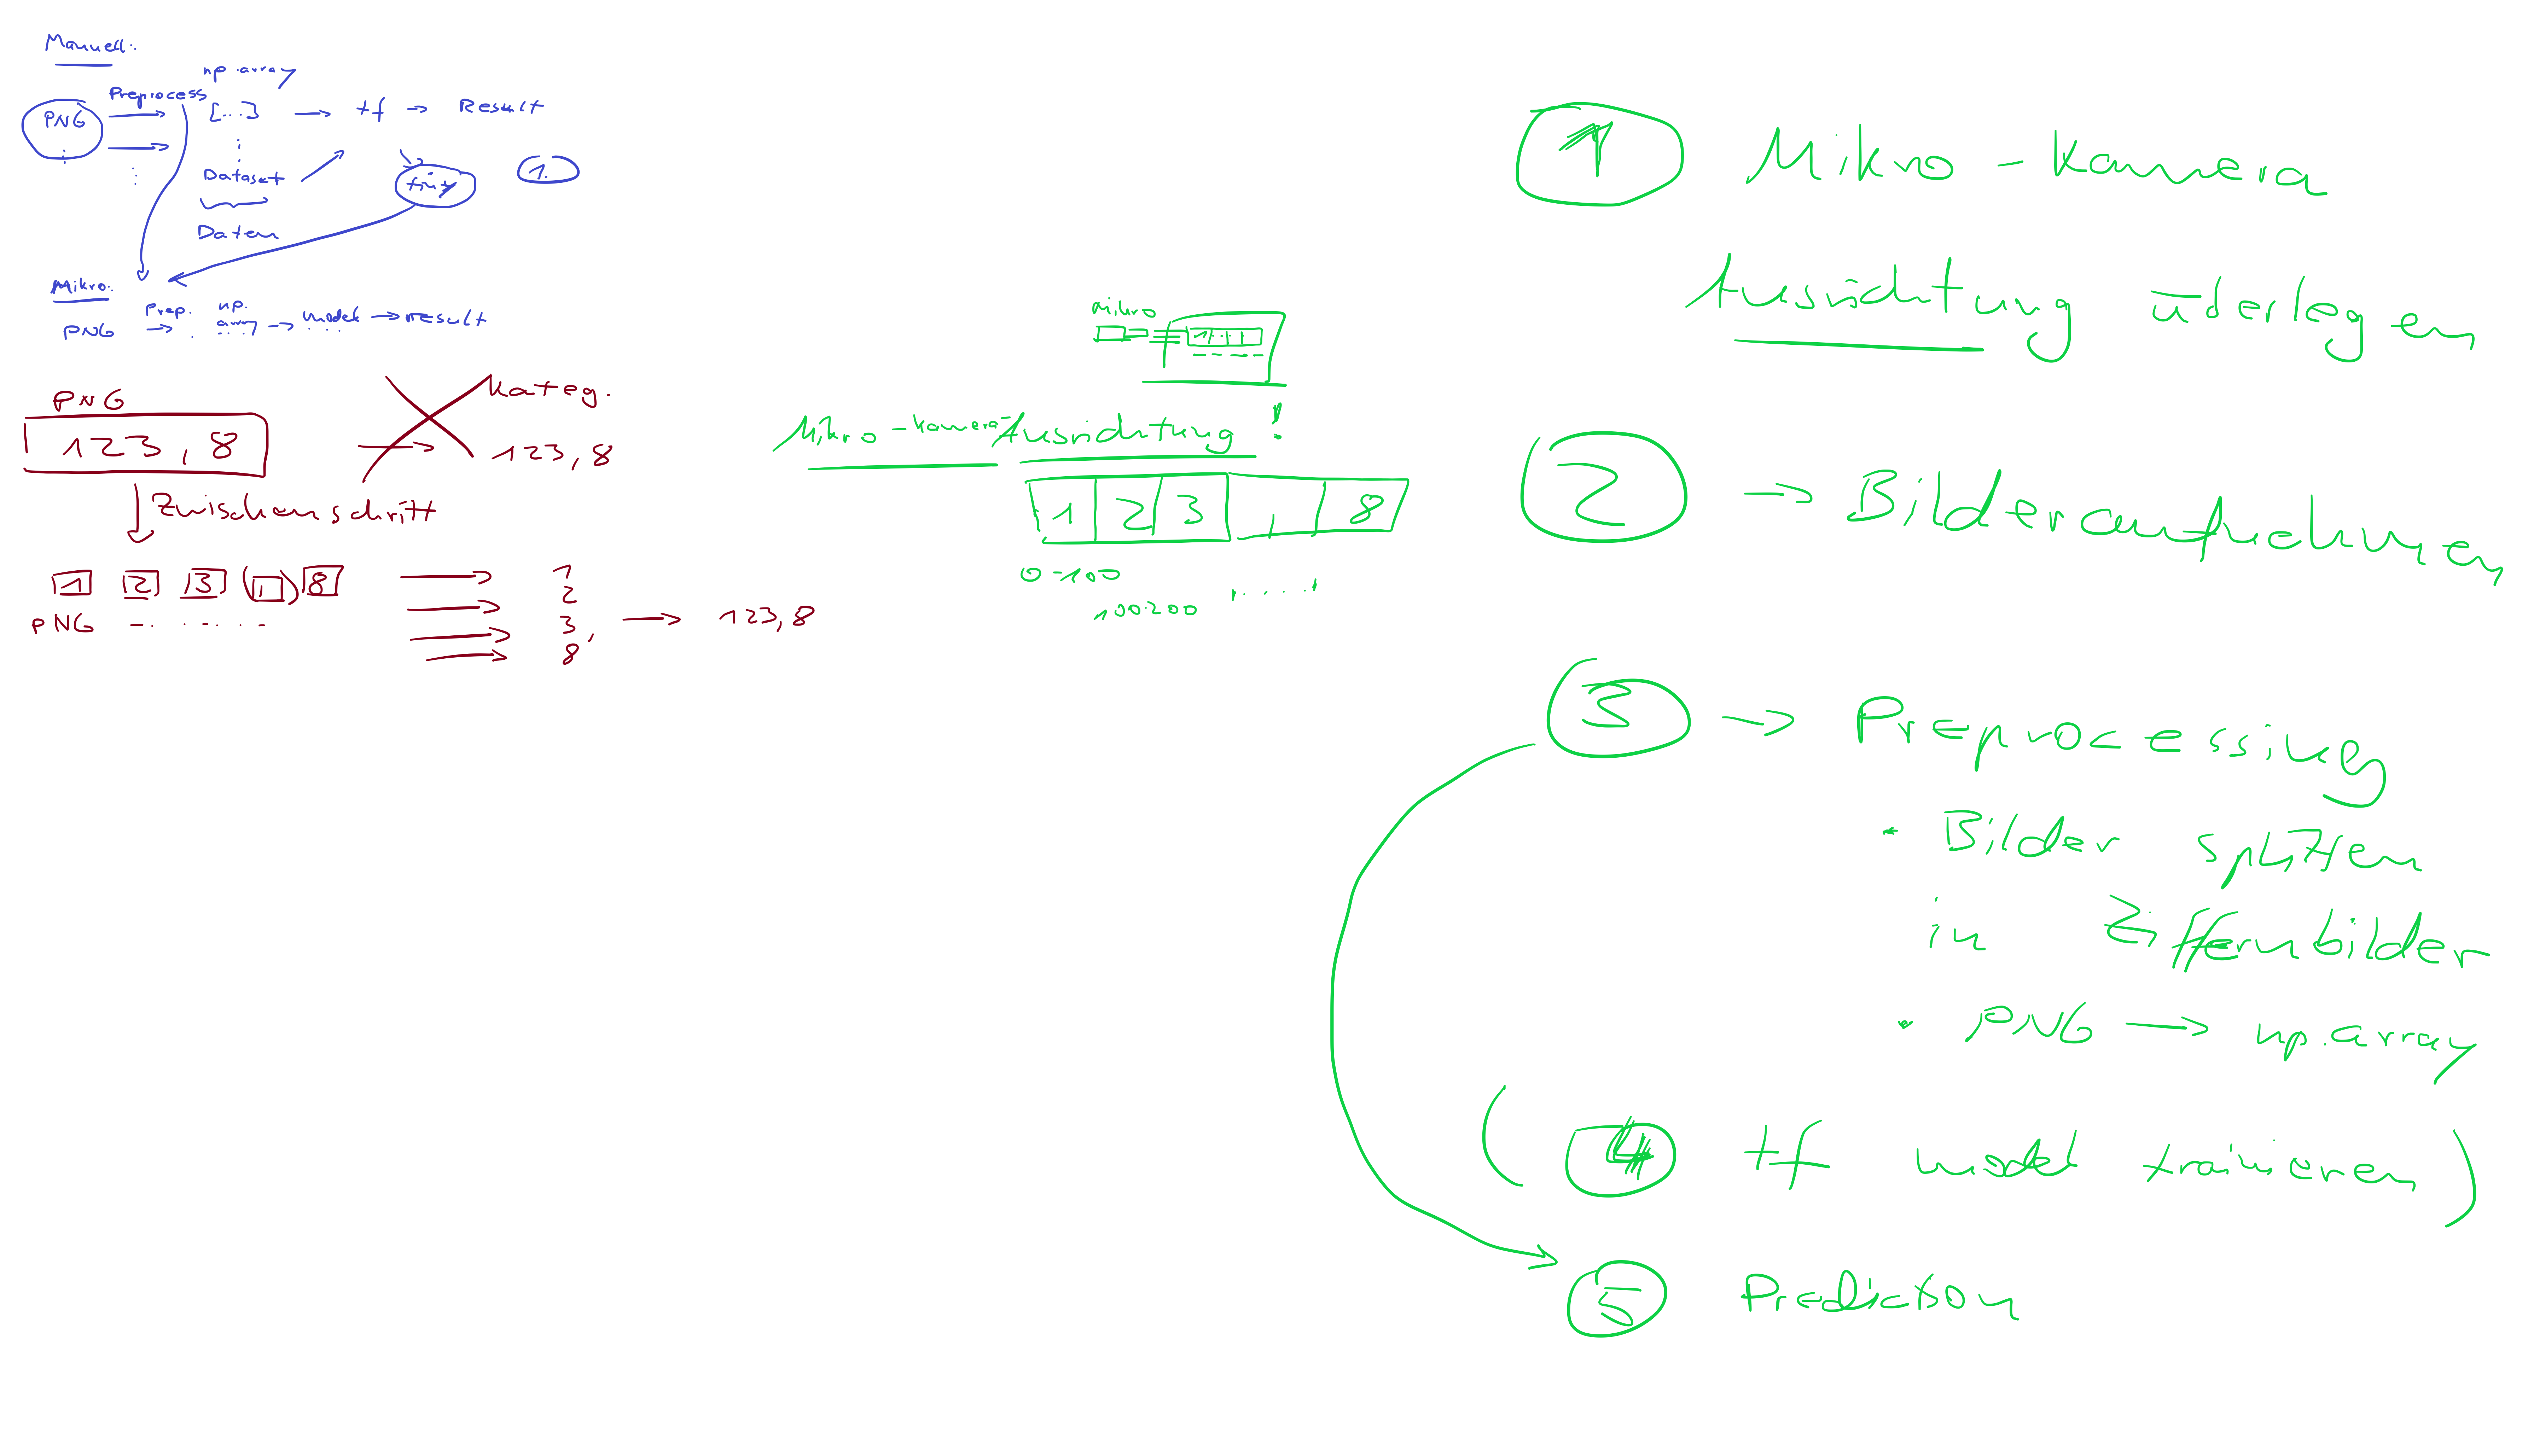 Manuell:
np.array
Preprocess
PNG
[...] → tf → Result
Dataset
tiny
1.
Daten
Mikro:
Prep. np.
PNG → array → model → result
PNG
kateg.
123,8
→ 123,8
Zwischenschritt
1 2 3 ( , ) 8
PNG
1
2
3,
8
→ 123,8
mikro
1
Mikro-Kamera Ausrichtung!
1 2 3 , 8
0-100
100-200
1 Mikro-Kamera
Ausrichtung überlegen
2 → Bilder aufnehmen
3 → Preprocessing
• Bilder splitten
in Ziffernbilder
• PNG → np.array
( 4 tf model trainieren )
5 Prediction